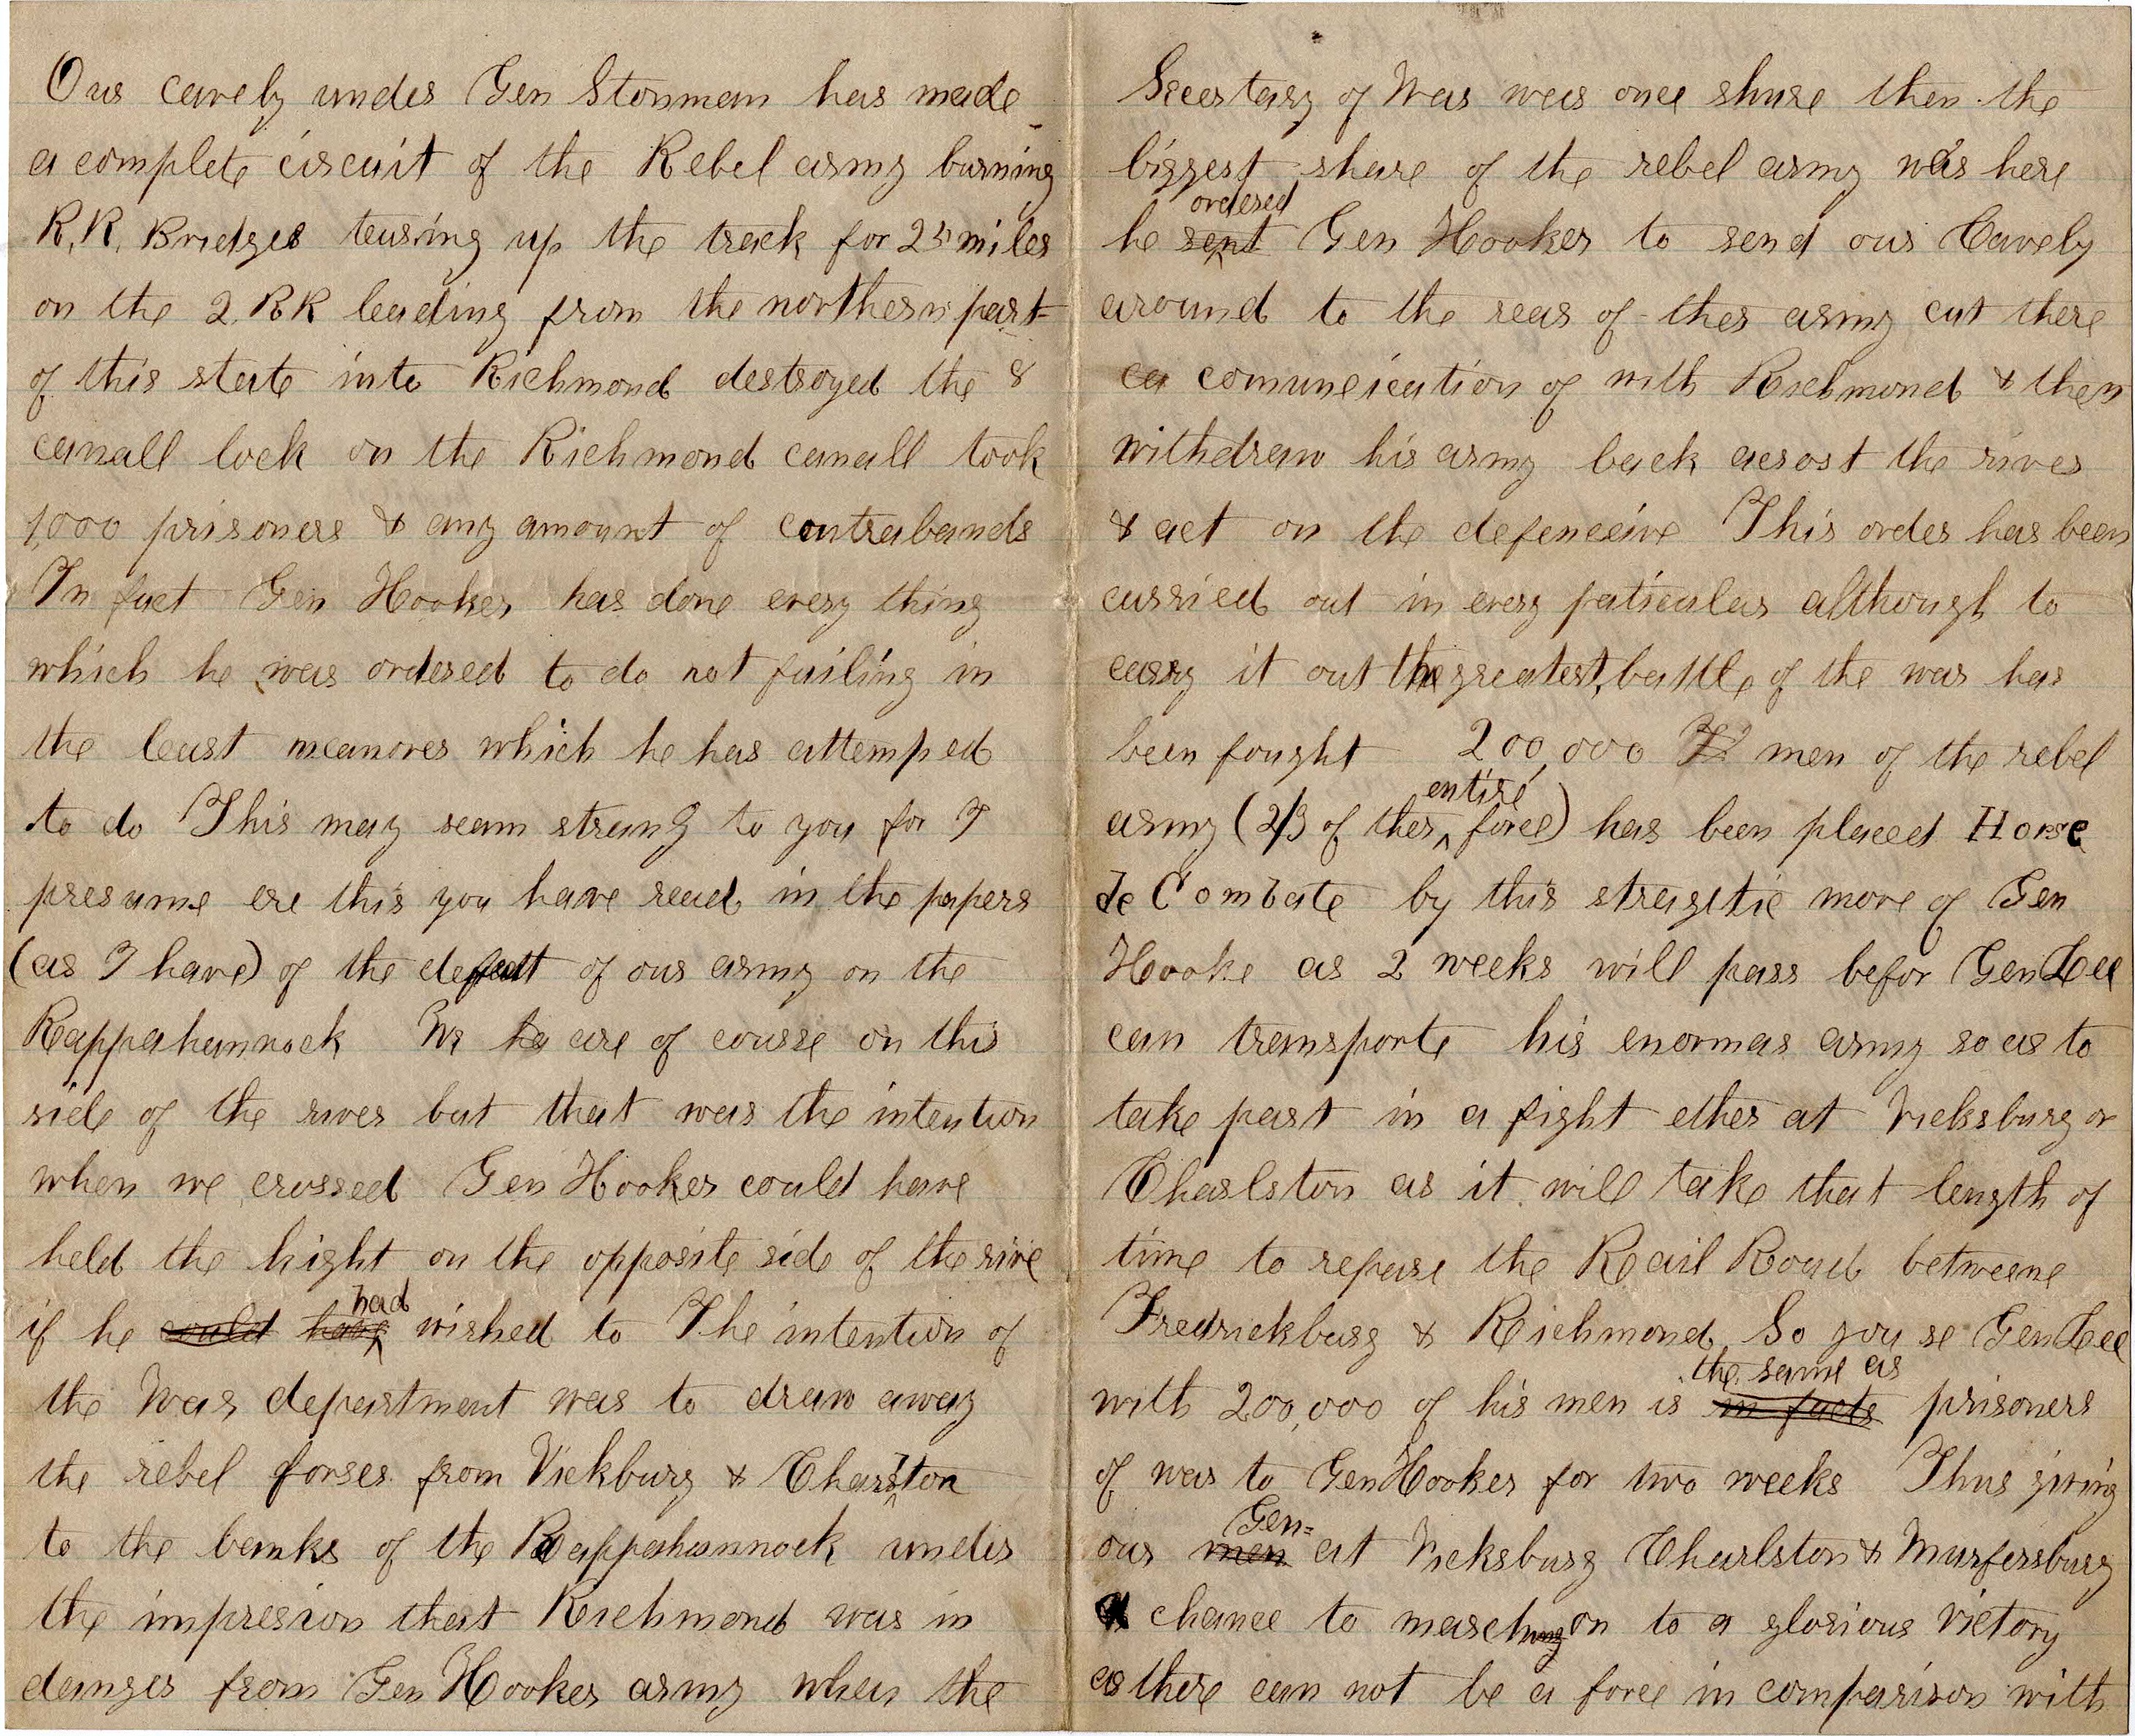 Our cavely under Gen Stonman has made
a complete circuit of the Rebel army burning
R.R. Bridges tearing up the track for 25 miles
on the 2 RR leading from the northern part
of this state into Richmond destroyed the 8
canall lock on the Richmond canall took
1,000 prisoners & any amount of contrabands
In fact Gen Hooker has done every thing
which he was ordered to do not failing in
the least meanores which he has attemped
to do This may seam strang to you for I
presume ere this you have read in the papers
(as I have) of the defeat of our army on the
Rappahannock We ha are of course on this
side of the river but that was the intention
when we crossed Gen Hooker could have
held the hight on the opposite side of the rive
if he could have had wished to The intention of
the War department was to draw away
the rebel forses from Vickburg & Charlston
to the banks of the Rappahannock under
the impresion that Richmond was in
danger from Gen Hooker army when the
Secertary of War was once shure then the
biggest share of the rebel army was here
he sent ordered Gen Hooker to send our Cavely
around to the rear of ther army cut there
ca comuneication of with Richmond & then
withdraw his army back acrost the river
& act on the defenceive This order has been
carried out in every paticular althougt to
carry it out the greatest battle of the war has
been fought 200,000 men of the rebel
army (2/3 of ther entire force) has been placed Horse
de Combate by this stragetic move of Gen
Hooke as 2 weeks will pass befor Gen Lee
can transporte his enormas army so as to
take part in a fight ether at Vicksburg or
Charlston as it will take that length of
time to repare the Rail Road betweene
Fredrickburg & Richmond So you se Gen Lee
with 200,000 of his men is in facts the same as prisoners
of war to Gen Hooker for two weeks Thus giving
our men Gen= at Vicksburg Charlston & Murfersburg
a chance to march on to a glorious victory
as there can not be a force in comparison with